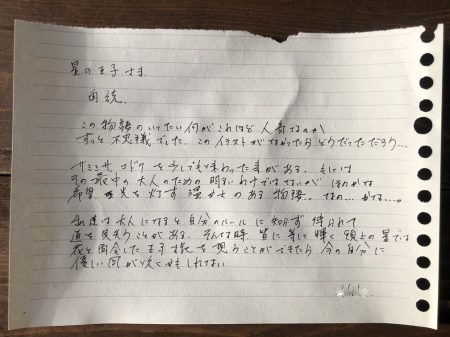 星の王子さま
この物語のいったい何がこれほど人気なのか
ずっと不思議でした。このイラストがなかったらどうだっただろう…
サミシサ、コドクを少しでも味わった事がある、もしくは
その最中の大人のための明るいわけではないが ほのかな
希望の光を灯す 温かさのある物語。なの…かな…。
私達は大人になると自分のルールに知らず縛られて
道を見失うことがある。そんな時、皆に等しく輝く頭上の星で
花と再会した王子様を想うことができたら今の自分に
優しい風が吹くかもしれない